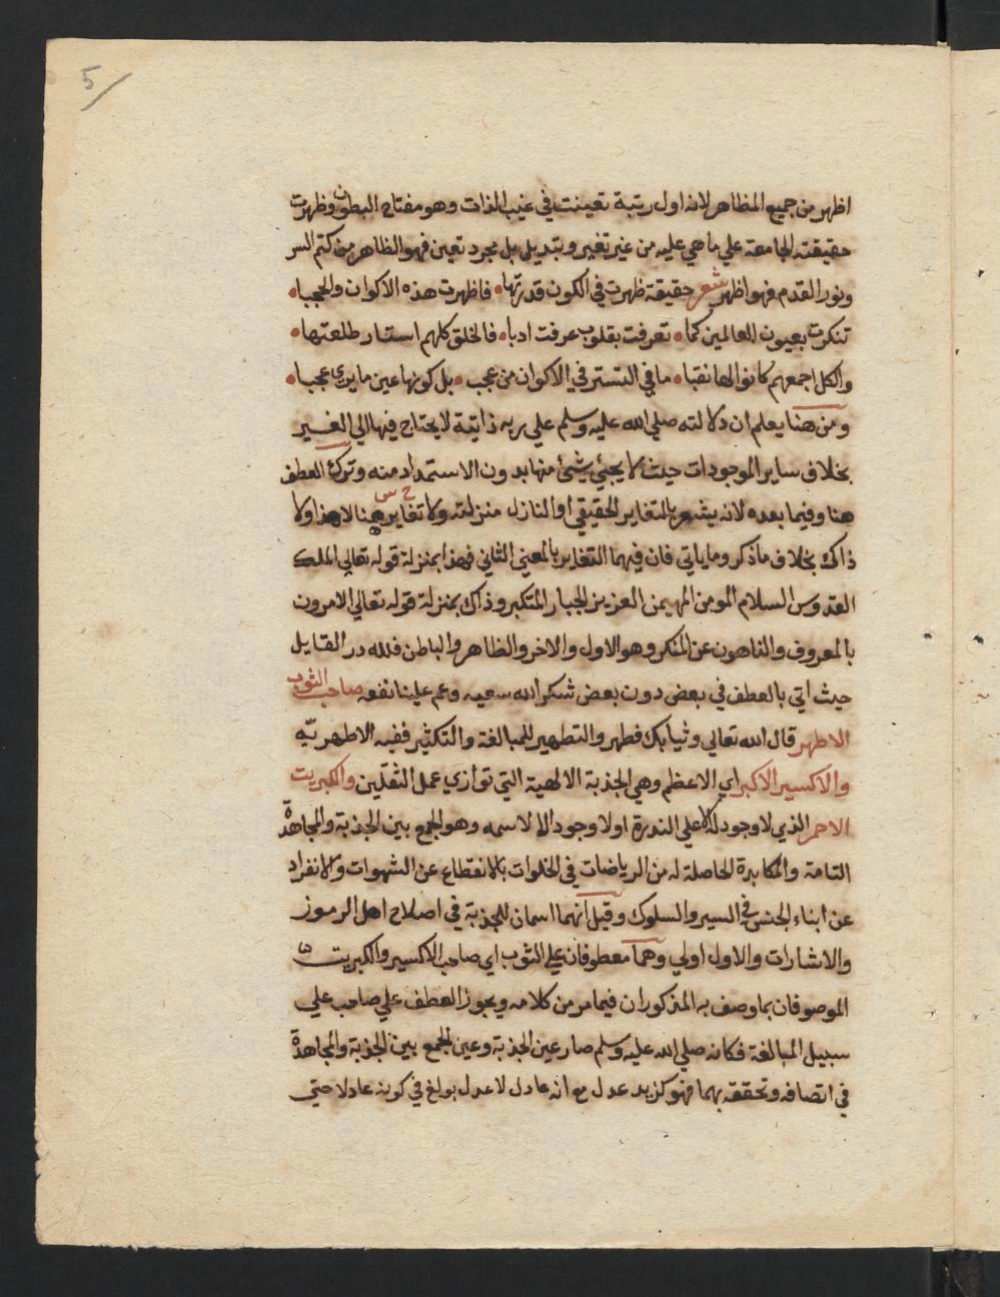 5
اظهر من جميع المظاهر لانه اول رتبة تعينت في غيب الذات وهو مفتاح البطون وظهرت
حقيقته الجامعة علي ما هي عليه من غير تغير وتبديل بل مجرد تعين فهو الظاهر من كتم السر
ونور القدم فهو اظهر شعر حقيقة ظهرت في الكون قدرتها • فاظهرت هذه الاكوان والحجبا •
تنكرت بعيون العالمين كما • تعرفت بقلوب عرفت ادبا • فالخلق كلهم استار طلعتها •
والكل اجمعهم كانوا لها نقبا • ما في التستر في الاكوان من عجب • بل كونها عين ما يري عجبا •
ومن هنا يعلم ان دلالته صلي الله عليه وسلم علي ربه ذاتية لا يحتاج فيها الي الغير
بخلاف ساير الموجودات حيث لا يجئي شئ منها بدون الاستمداد منه وترك العطف
هنا وفيما بعده لانه يشعر بالتغاير الحقيقي او النازل منزلته ولا تغاير هنا لا هذا ولا
ذاك بخلاف ما ذكر وما ياتي فان فيهما التغاير بالمعني الثاني فهذا بمنزلة قوله تعالي الملك
القدوس السلام المومن المهيمن العزيز الجبار المتكبر وذاك بمنزلة قوله تعالي الامرون
بالمعروف والناهون عن المنكر وهو الاول والاخر والظاهر والباطن فلله در القايل
حيث اتي بالعطف في بعض دون بعض شكر الله سعيه وعم علينا نفعه صاحب الثوب
الاطهر قال الله تعالي وثيابك فطهر والتطهير للمبالغة والتكثير ففيه الاطهريّه
والاكسير الاكبر اي الاعظم وهي الجذبة الالهية التي توازي عمل الثقلين والكبريت
الاحمر الذي لا وجود له الا علي الندرة او لا وجود الا لاسمه وهو الجمع بين الجذبة والمجاهدة
التامة والمكابرة الحاصلة له من الرياضات في الخلوات بالانقطاع عن الشهوات والانفراد
عن ابناء الجنس في السير والسلوك وقيل انهما اسمان للجذبة في اصلاح اهل الرموز
والاشارات والاول اولي وهما معطوفان علي الثوب اي صاحب الاكسير والكبريت
الموصوفان بما وصف به المذكوران فيما مر من كلامه ويجوز العطف علي صاحب علي
سبيل المبالغة فكانه صلي الله عليه وسلم صار عين الجذبة وعين الجمع بين الجذبة والمجاهدة
في اتصافه وتحققه بهما فهو كزيد عدل مع انه عادل لا عدل بولغ في كونه عادلا حتي